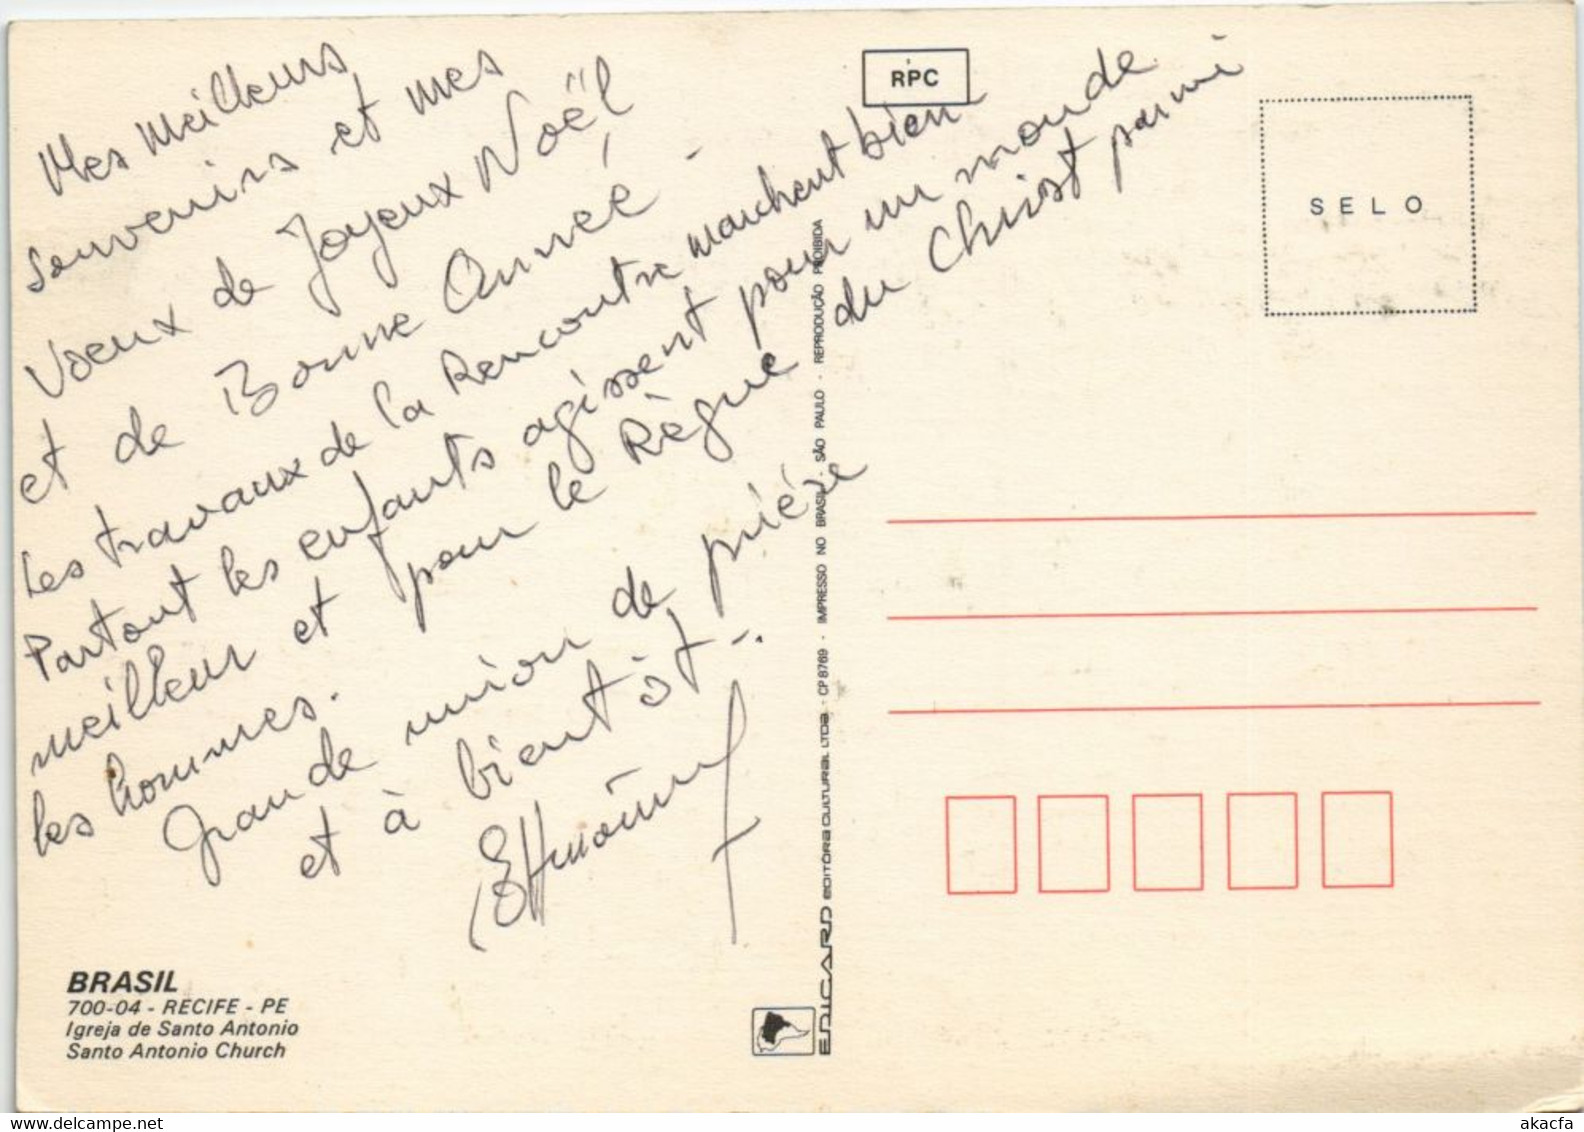 Mes meilleurs
souvenirs et mes
voeux de Joyeux Noël
et de Bonne Année -
Les travaux de la Rencontre marchent bien
Partout les enfants agissent pour un monde
meilleur et pour le Règne du Christ parmi
les hommes.
Grande union de prière
et à bientôt -.
BRASIL
700-04 - RECIFE - PE
Igreja de Santo Antonio
Santo Antonio Church
EDICARD EDITORA CULTURAL LTDA. - CP 8769 - IMPRESSO NO BRASIL - SÃO PAULO - REPRODUÇÃO PROIBIDA
RPC
SELO
akacfa